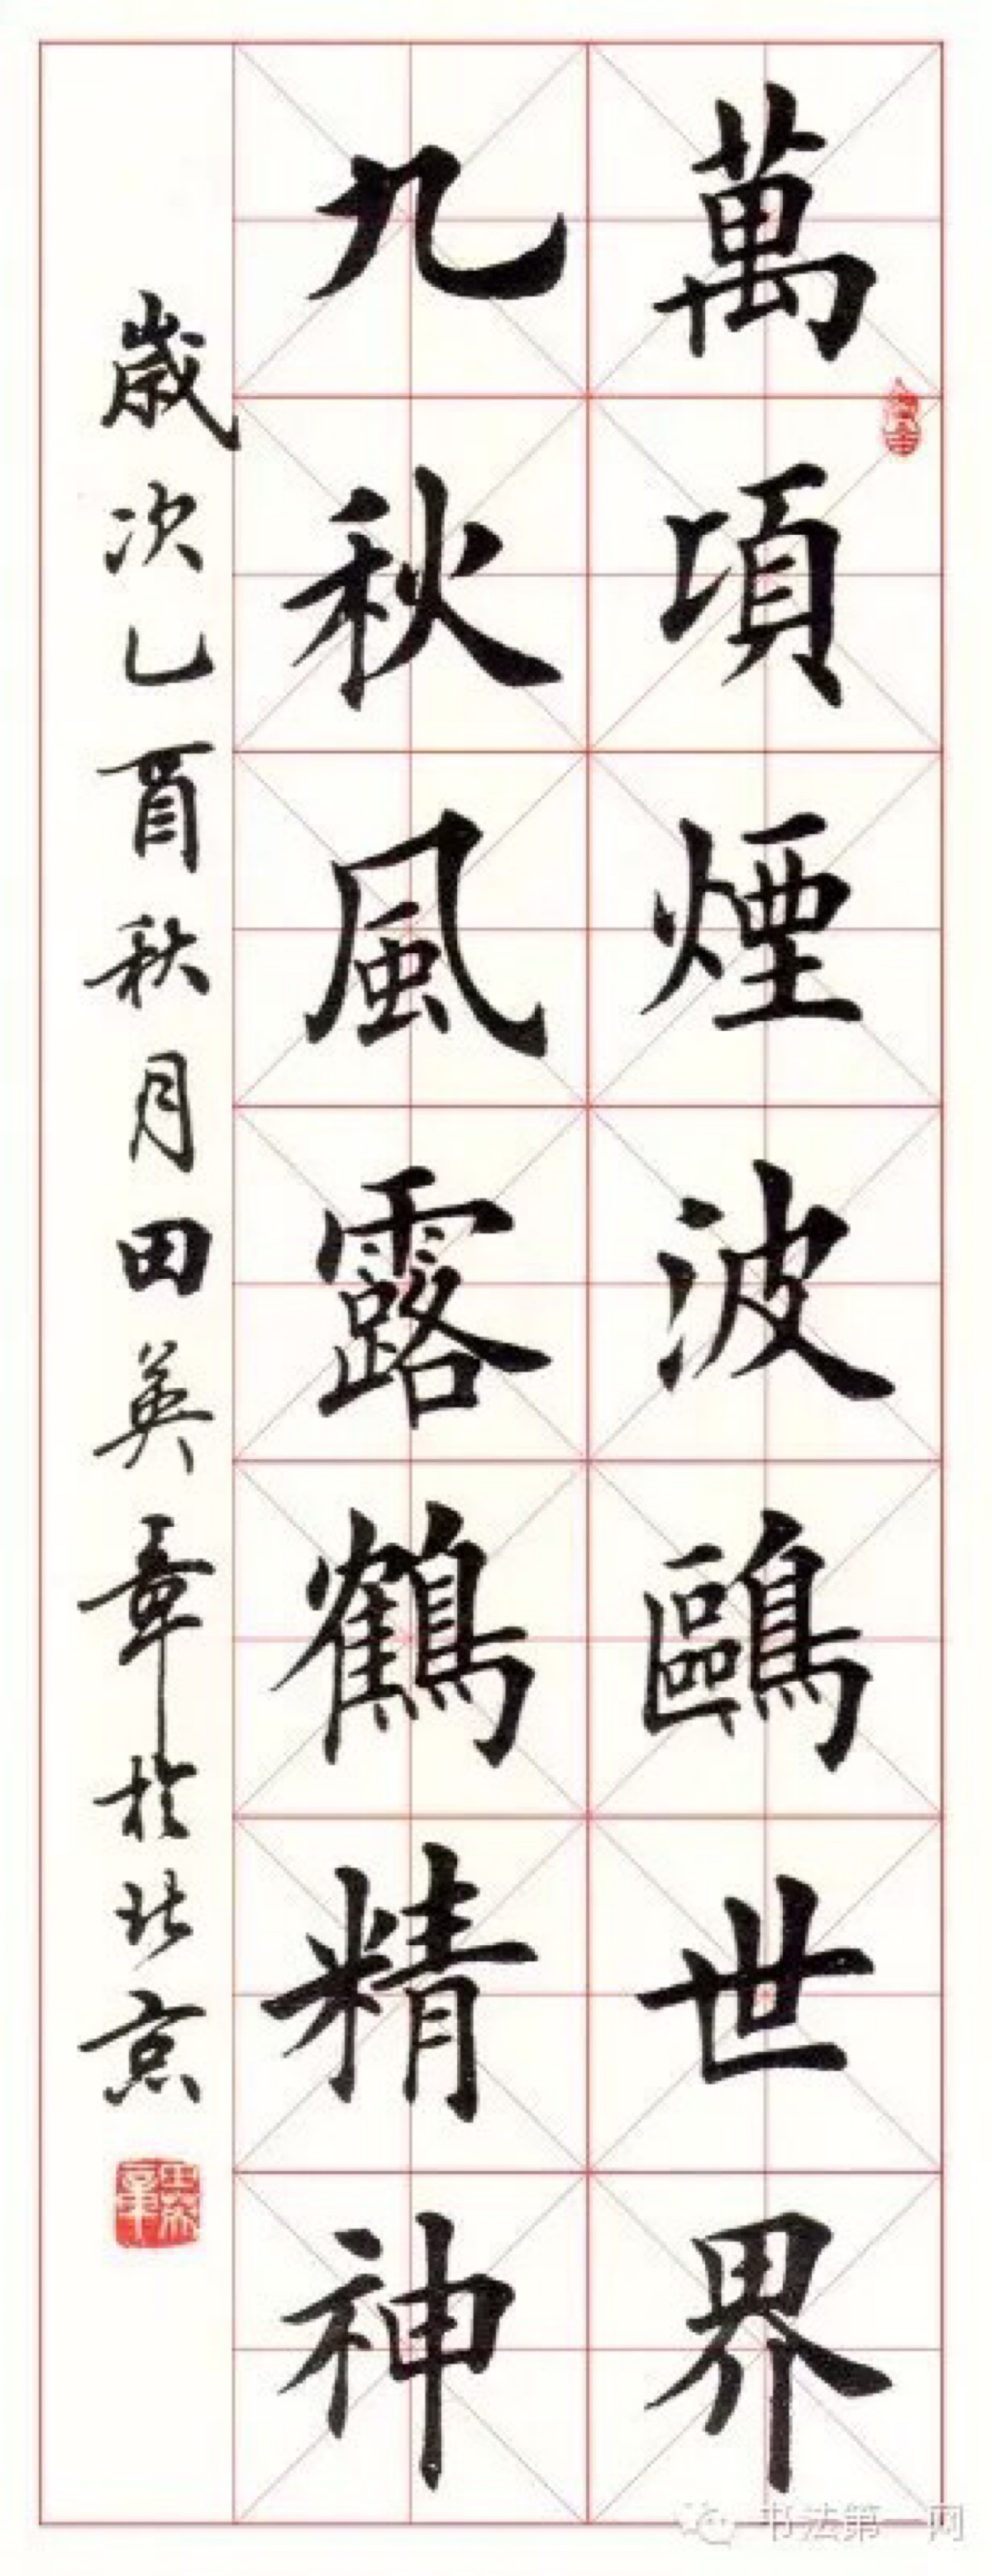 萬頃煙波鷗世界
九秋風露鶴精神
歲次乙酉秋月田英章於北京
田英章
书法第一网